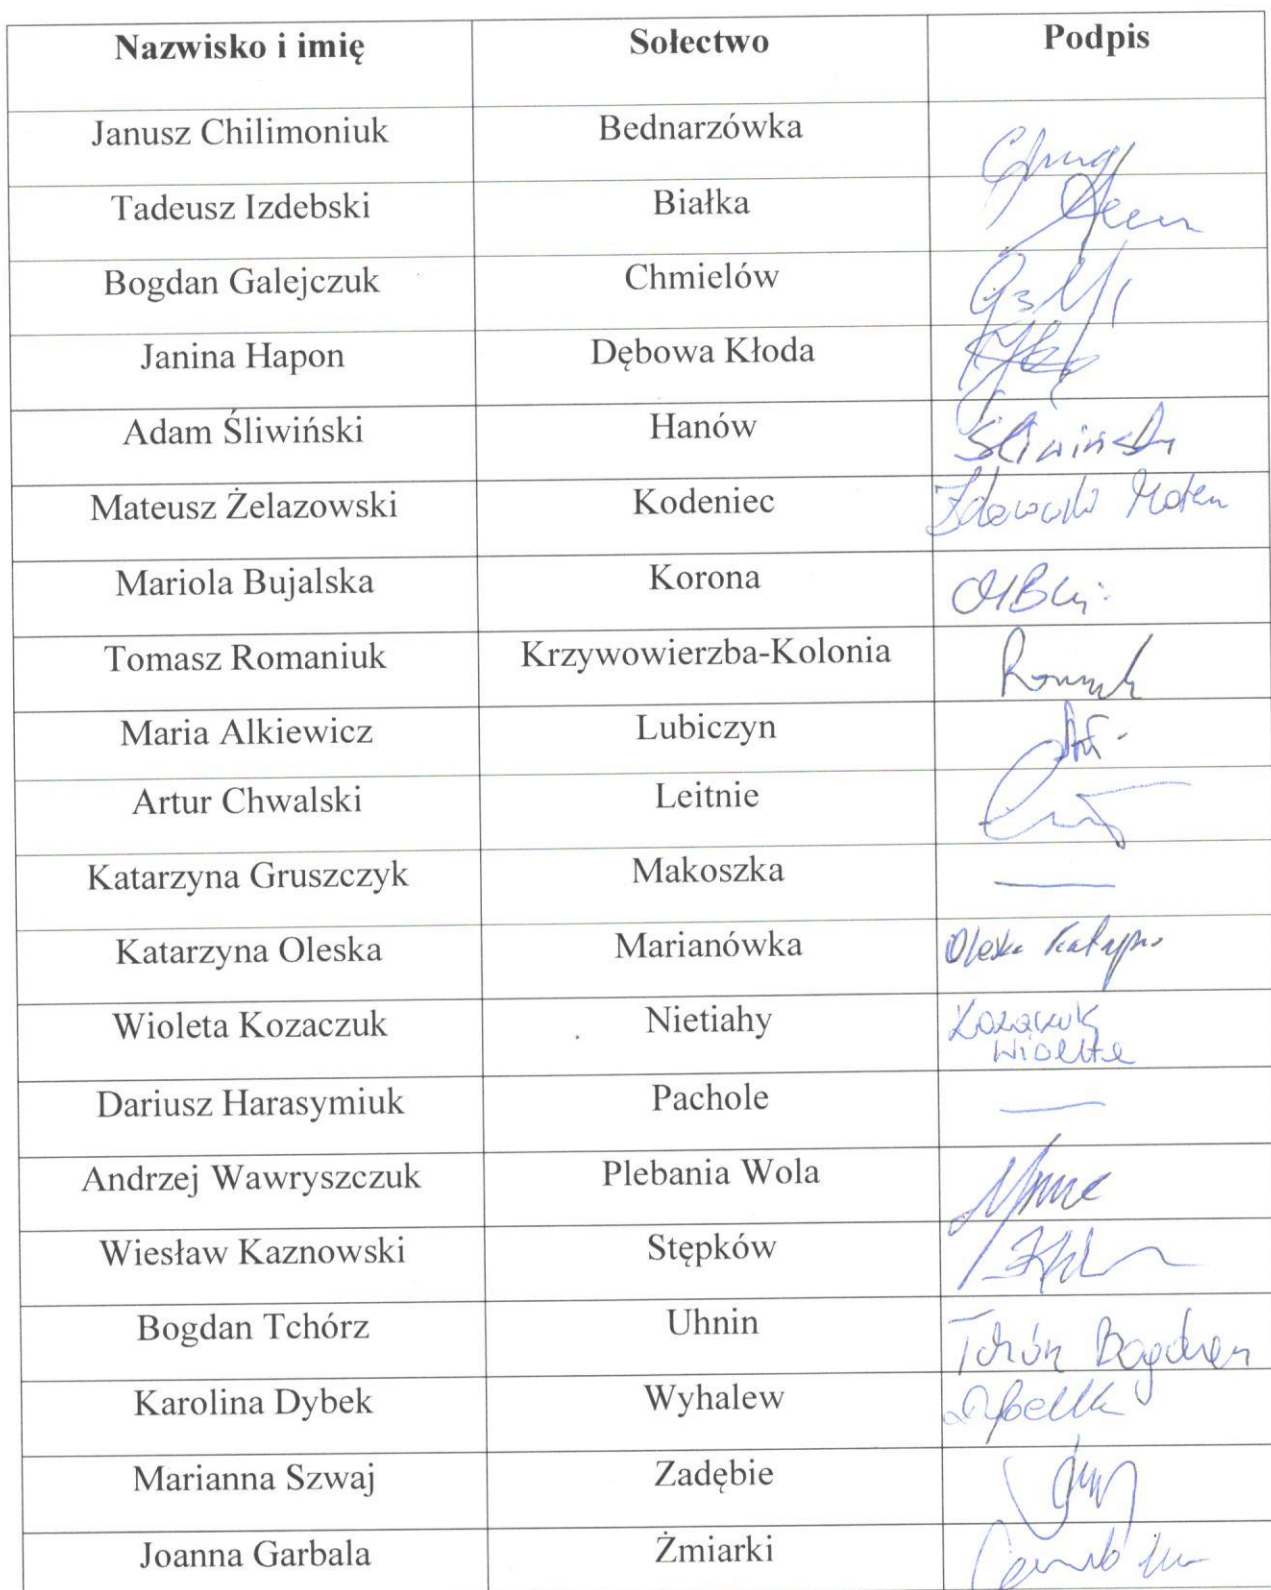 Nazwisko i imię Sołectwo Podpis
Janusz Chilimoniuk Bednarzówka
Tadeusz Izdebski Białka
Bogdan Galejczuk Chmielów
Janina Hapon Dębowa Kłoda
Adam Śliwiński Hanów Śliwiński
Mateusz Żelazowski Kodeniec
Mariola Bujalska Korona
Tomasz Romaniuk Krzywowierzba-Kolonia
Maria Alkiewicz Lubiczyn
Artur Chwalski Leitnie
Katarzyna Gruszczyk Makoszka —
Katarzyna Oleska Marianówka Oleska
Wioleta Kozaczuk Nietiahy Kozaczuk
Wioletta
Dariusz Harasymiuk Pachole —
Andrzej Wawryszczuk Plebania Wola
Wiesław Kaznowski Stępków
Bogdan Tchórz Uhnin Tchórz Bogdan
Karolina Dybek Wyhalew
Marianna Szwaj Zadębie
Joanna Garbala Żmiarki